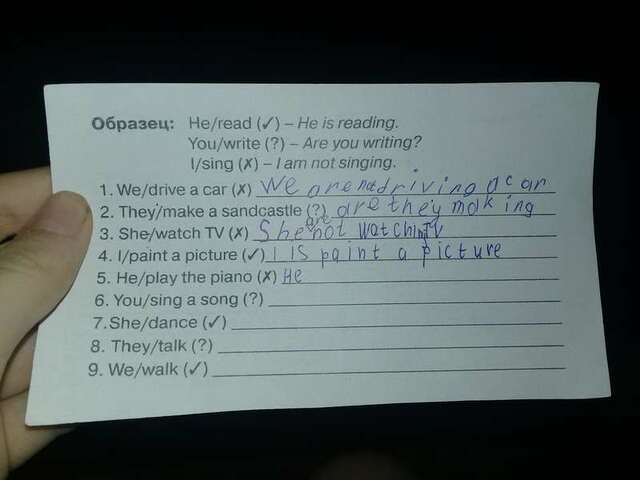 Образец: He/read (✓) – He is reading.
You/write (?) – Are you writing?
I/sing (✗) – I am not singing.
1. We/drive a car (✗) We are not driving a car
2. They/make a sandcastle (?) are they making
3. She/watch TV (✗) She are not watching TV
4. I/paint a picture (✓) I IS paint a picture
5. He/play the piano (✗) He
6. You/sing a song (?)
7.She/dance (✓)
8. They/talk (?)
9. We/walk (✓)